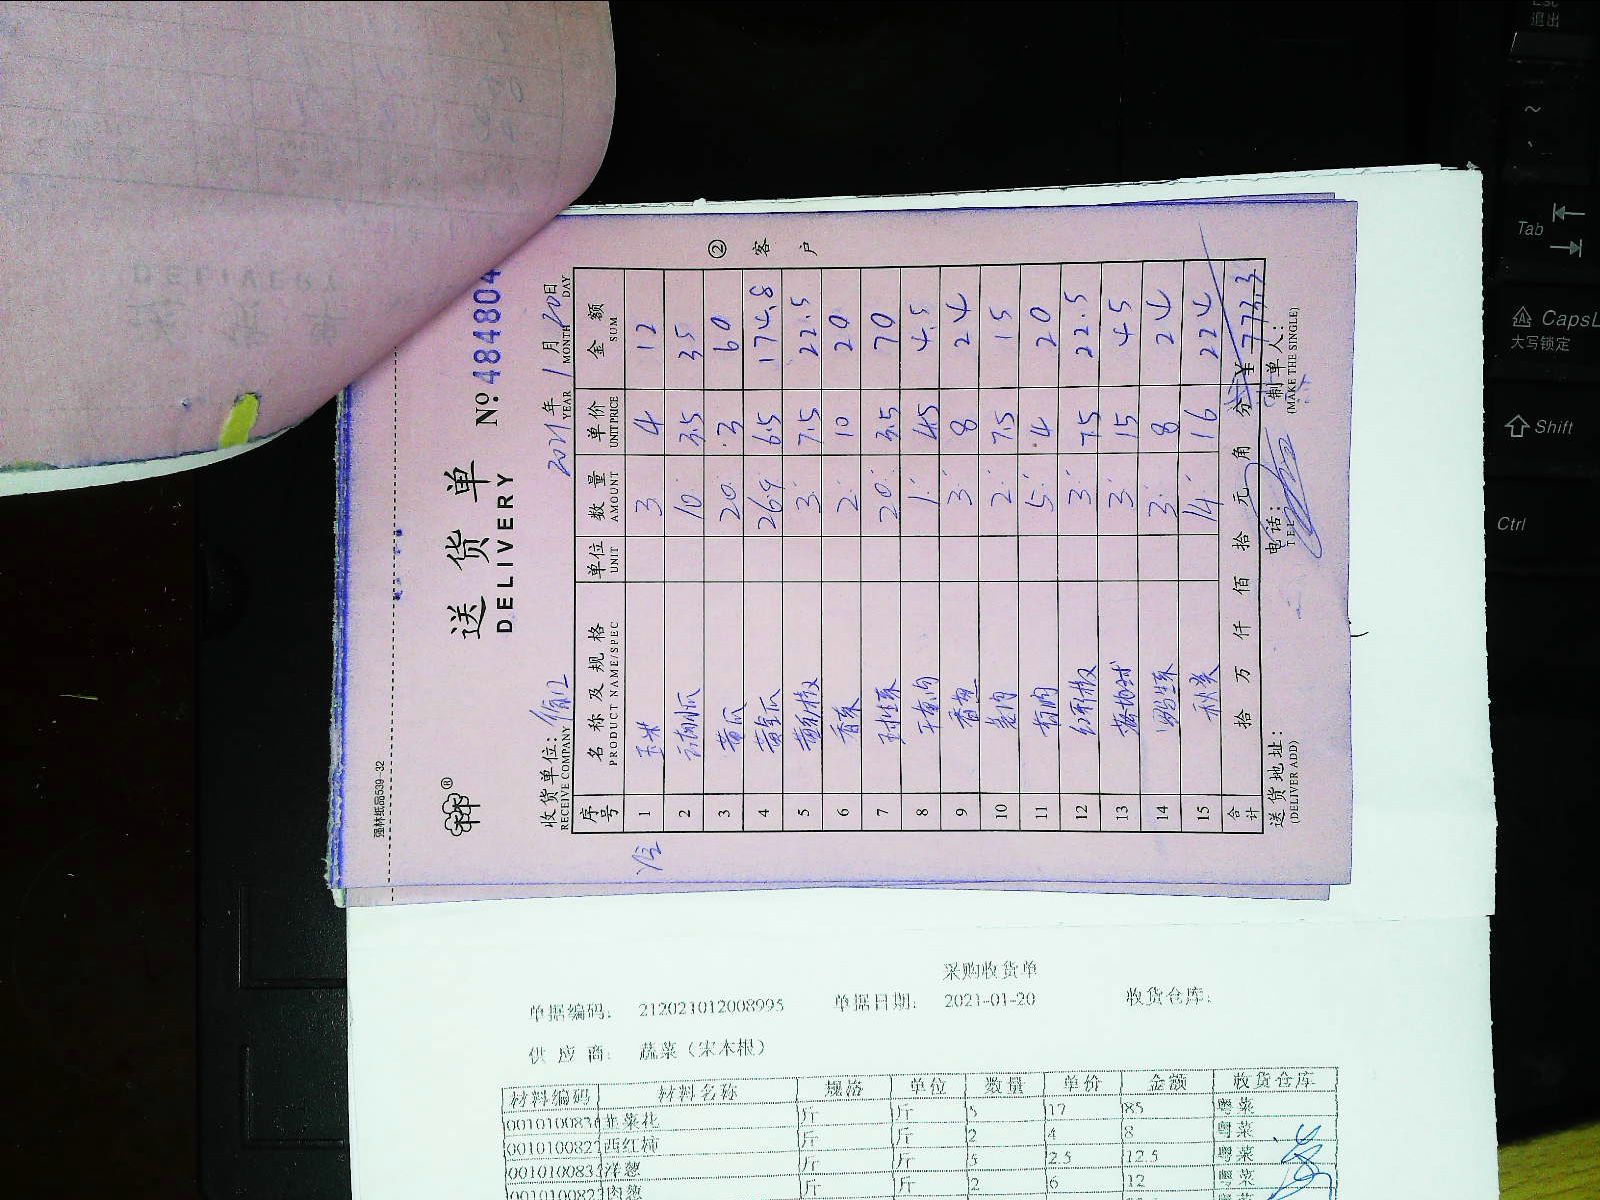 强林纸品539-32
送货单
DELIVERY
No 484804
收货单位:
RECEIVE COMPANY
2021年 1月 20日
YEAR MONTH DAY
序号 名称及规格 单位 数量 单价 金额
PRODUCT NAME/SPEC UNIT AMOUNT UNIT PRICE SUM
1 玉米 3 4 12
2 10 3.5 35
3 黄瓜 20 3 60
4 黄金瓜 26.9 6.5 174.8
5 黄尖椒 3 7.5 22.5
6 香菜 2 10 20
7 20 3.5 70
8 1 4.5 4.5
9 香葱 3 8 24
10 2 7.5 15
11 5 4 20
12 红尖椒 3 7.5 22.5
13 3 15 45
14 3 8 24
15 秋葵 14 16 224
合计 拾 万 仟 佰 拾 元 角 分 ¥ 773.3
送货地址:
(DELIVER ADD)
电话:
TEL
制单人:
(MAKE THE SINGLE)
② 客户
采购收货单
单据编码: 212021012008995 单据日期: 2021-01-20 收货仓库:
供应商: 蔬菜（宋本根）
材料编码 材料名称 规格 单位 数量 单价 金额 收货仓库
韭菜花 斤 斤 5 17 85 粤菜
西红柿 斤 斤 2 4 8 粤菜
洋葱 斤 斤 5 2.5 12.5 粤菜
肉葱 斤 斤 2 6 12 粤菜
Esc
退出
~
Tab
CapsL
大写锁定
Shift
Ctrl